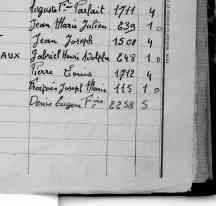 Auguste F^ois Parfait 1711 4
Jean Marie Julien 239 1 D
Jean Joseph 1508 4
AUX Gabriel Henri Adolphe 248 1 D
Pierre 1712 4
François Joseph Marie 115 1 D
Denis Eugène 2258 5